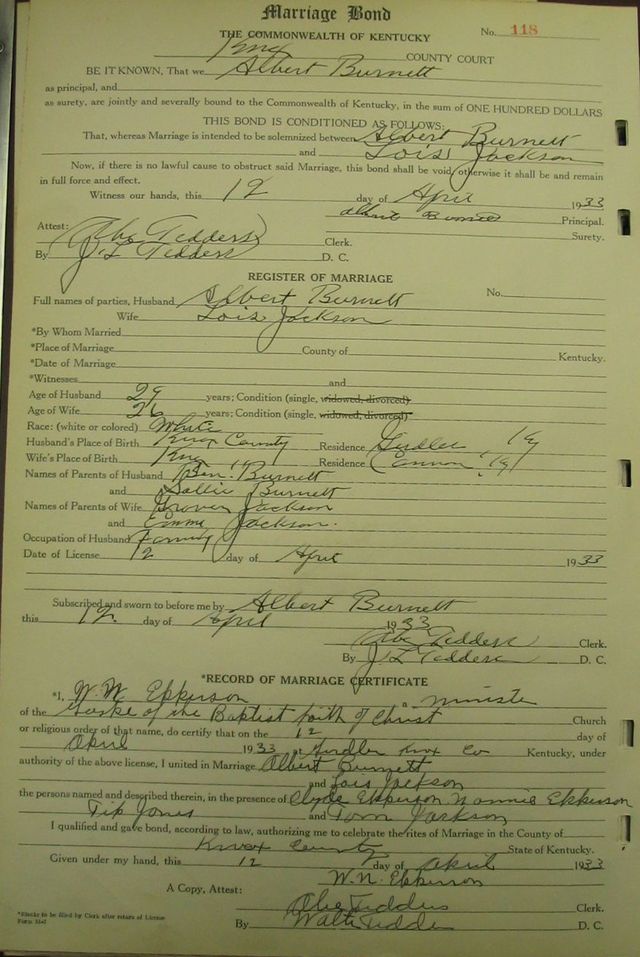 Marriage Bond
THE COMMONWEALTH OF KENTUCKY No. 118
Knox COUNTY COURT
BE IT KNOWN, That we Albert Burnett
as principal, and
as surety, are jointly and severally bound to the Commonwealth of Kentucky, in the sum of ONE HUNDRED DOLLARS
THIS BOND IS CONDITIONED AS FOLLOWS:
That, whereas Marriage is intended to be solemnized between Albert Burnett
and Lois Jackson
Now, if there is no lawful cause to obstruct said Marriage, this bond shall be void, otherwise it shall be and remain
in full force and effect.
Witness our hands, this 12 day of April 1933
Albert Burnett Principal.
Surety.
Attest:
Abe Tedders Clerk.
By J L Tedders D. C.
REGISTER OF MARRIAGE
Full names of parties, Husband Albert Burnett No.
Wife Lois Jackson
*By Whom Married
*Place of Marriage County of Kentucky.
*Date of Marriage
*Witnesses and
Age of Husband 29 years; Condition (single, widowed, divorced)
Age of Wife 26 years; Condition (single, widowed, divorced)
Race: (white or colored) White
Husband's Place of Birth Knox County Residence Girdler Ky
Wife's Place of Birth Knox " Residence Cannon Ky
Names of Parents of Husband Ben. Burnett
and Sallie Burnett
Names of Parents of Wife Grover Jackson
and Emma Jackson.
Occupation of Husband Farming
Date of License 12 day of April 1933
Subscribed and sworn to before me by Albert Burnett
this 12 day of April 1933
Abe Tedders Clerk.
By J L Tedders D. C.
*RECORD OF MARRIAGE CERTIFICATE
*I, W. W. Epperson a minister
of the of the Baptist faith of Christ Church
or religious order of that name, do certify that on the 12 day of
April 1933 at Girdler Knox Co Kentucky, under
authority of the above license, I united in Marriage Albert Burnett
and Lois Jackson
the persons named and described therein, in the presence of Clyde Epperson Nannie Epperson
Tip Jones and Tom Jackson
I qualified and gave bond, according to law, authorizing me to celebrate the rites of Marriage in the County of
Knox County State of Kentucky.
Given under my hand, this 12 day of April 1933
W. N. Epperson
A Copy, Attest:
Abe Tedders Clerk.
By Walter Tedder D. C.
*Blanks to be filled by Clerk after return of License